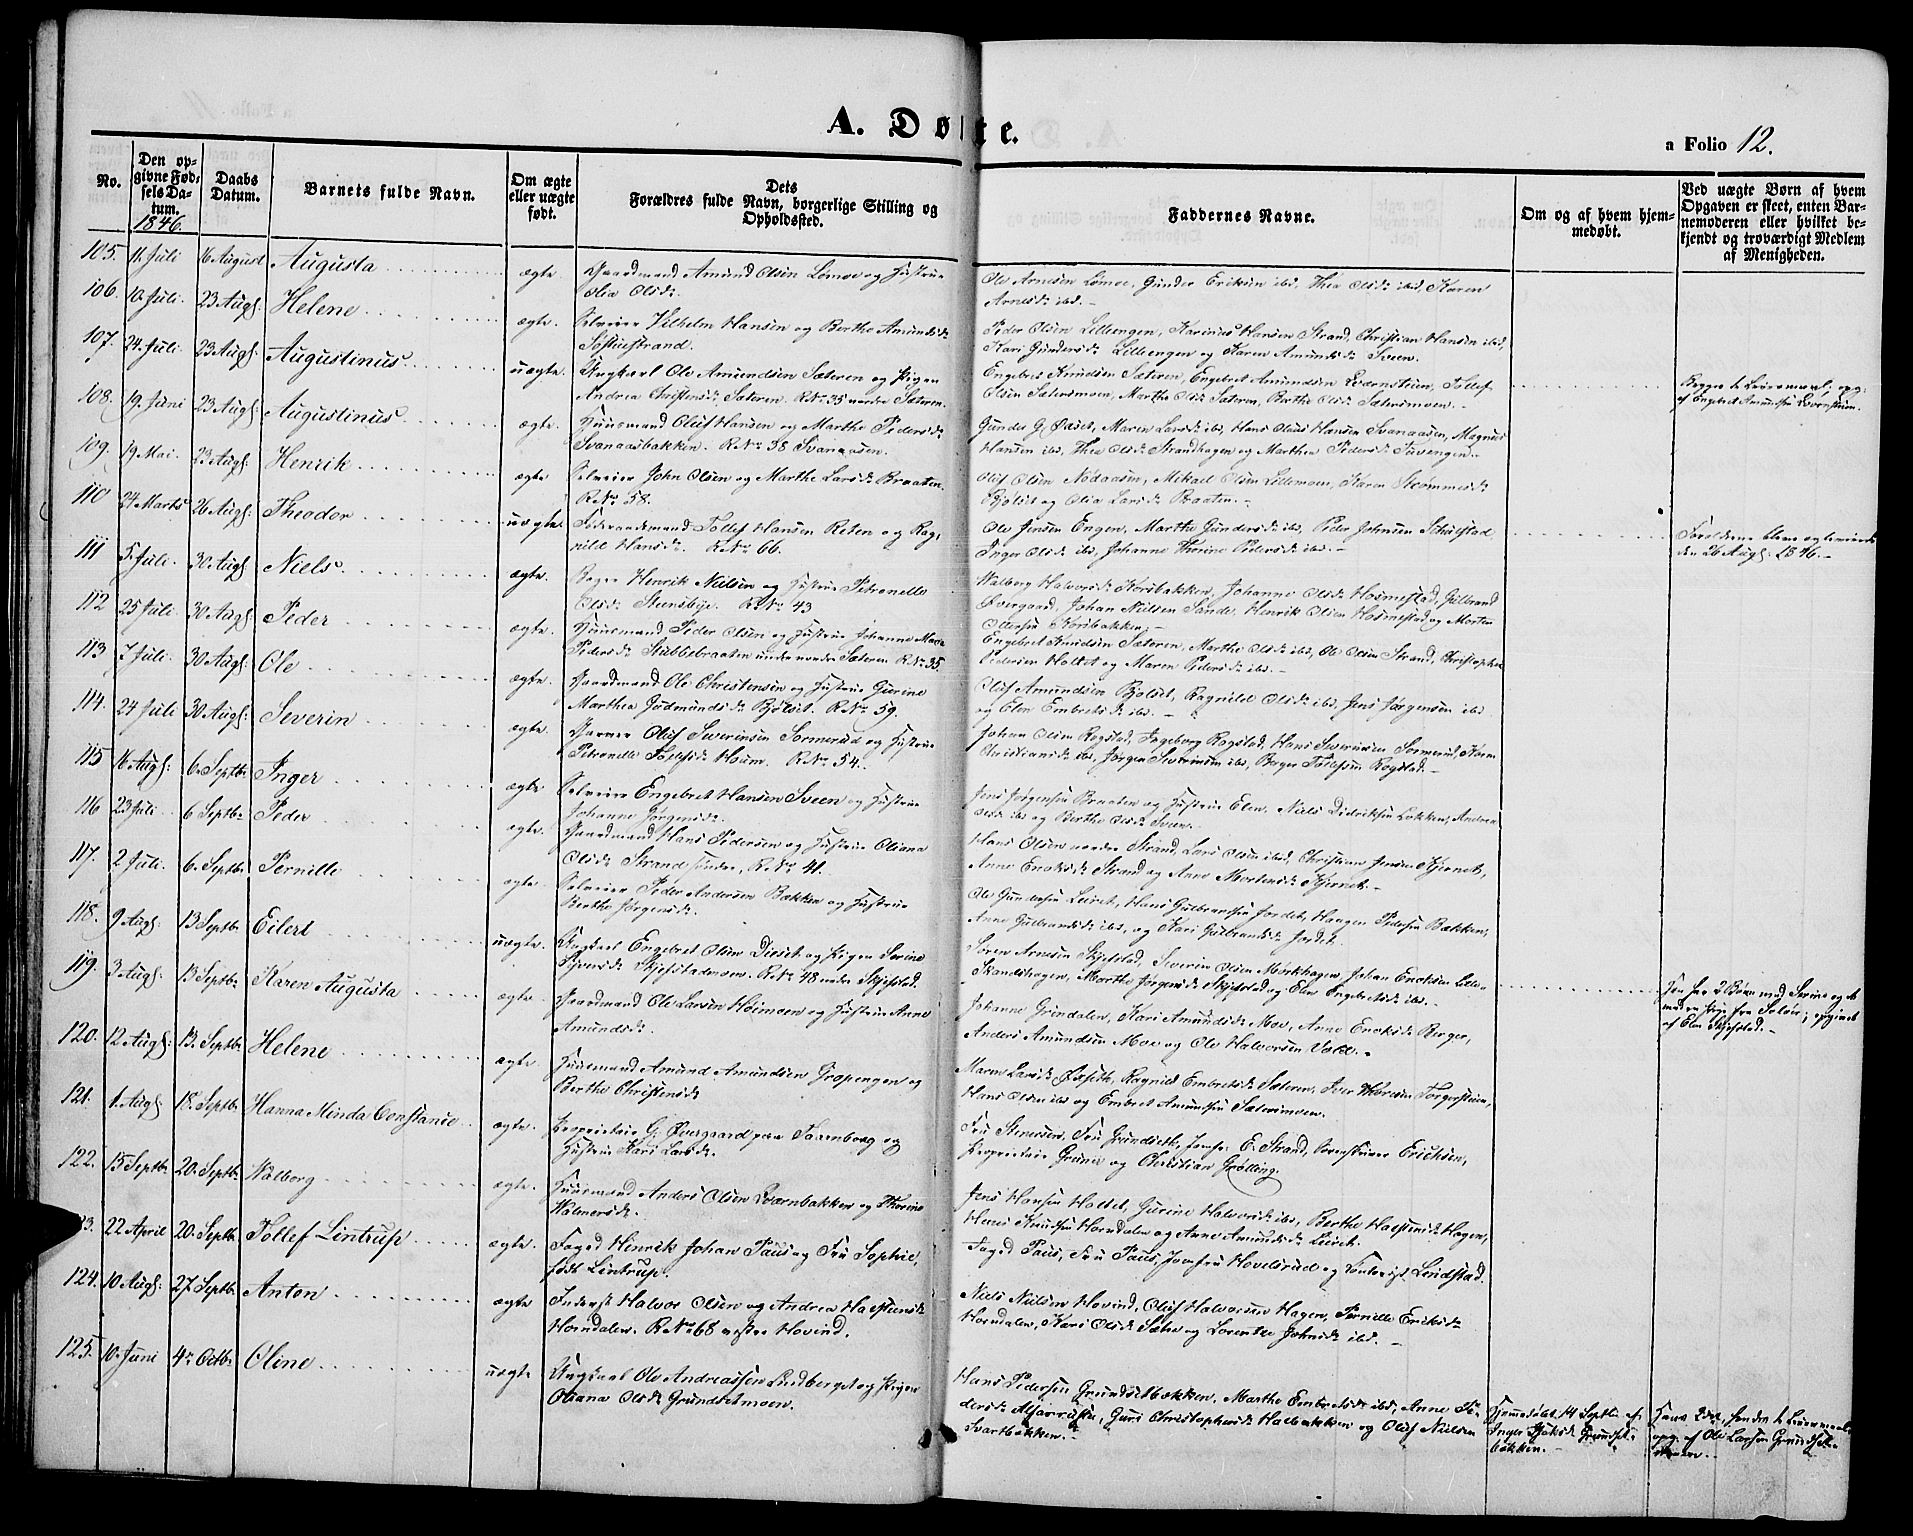 A. Døbte.
a Folio 12.
No.
Den op-
givne Fød-
sels Da-
tum.
1846.
Daabs
Datum.
Barnets fulde Navn.
Om ægte
eller uægte
født.
Dets
Forældres fulde Navn, borgerlige Stilling og
Opholdssted.
Faddernes Navne.
Om og af hvem hjem-
medøbt.
Ved uægte Børn af hvem
Opgaven er skeet, enten Bar-
nemoderen eller hvilket be-
kjendt og troværdigt Medlem
af Menigheden.
105. 11. Juli 16 August Augusta ægte. Gaardmand Amund Olsen Lomoe og Hustrue
Olia Olsdr.
Ole Arnesen Lømoe, Gunder Eriksen ibd, Thea Olsdr ibd, Karen
Arnesdr ibd. -
106. 10. Juli. 23 Augs: Helene ægte. Selveier Vilhelm Hansen og Berthe Amundsdr
Peder Olsen Lilleengen, Karinus Hansen Strand, Christian Hansen ibd,
Kari Gundersdr Lilleengen og Karen Amundsdr Sveen.
107. 24. Juli 23 Augs: Augustinus uægte. Ungkarl Ole Amundsen Sæteren og Pigen
Andrea Christensdr Sæteren. RNr 35 nordre Sæteren.
Engebret Knudsen Sæteren, Engebret Amundsen Qvernstuen, Tollef
Olsen Sætersmoen, Marthe Olsdr Sæteren, Berthe Olsdr Sætersmoen. -
Begges 1. Leiermaal; opg:
af Engebret Amundsen Qvernstuen.
108. 19. Juni 23 Augs: Augustinus ægte. Huusmand Oluf Hansen og Marthe Pedersdr
Svanaasbakken. RNr 38 Svanaasen.
Gunder G. Øxset, Maren Larsdr ibd, Hans Olaus Hansen Svanaasen, Magnus
Hansen ibd, Thea Olsdr Strandhagen og Marthea Pedersdr
109. 19 Mai. 23 Augs: Henrik ægte Selveier John Olsen og Marthe Larsdr Braaten.
RNr 58.
Oluf Olsen Nødaasen, Mikael Olsen Lillemoen, Karen
Bjølset og Olia Larsdr Braaten. -
110 24 Marts 26 Augs: Theodor uægte. Tollef Hansen Reten og Rag-
nild Hansdr. RNr 66.
Ole Jensen Engen, Marthe Gundersdr ibd, Peder Johnsen
Inger Olsdr ibd, Johanne Thorine Pedersdr ibd. -
Forældrene bleve copulerede
den 26 Augs: 1846. -
111 5. Juli. 30 Augs: Niels ægte. Henrik Nielsen og Hustrue Petronelle
Olsdr Steensbye. RNr 43
Walborg Halvorsdr Korsbakken, Johanne Olsdr Hosmestad, Gulbrand
Øvergaard, Johan Nielsen Sande, Henrik Olsen Hosmestad og Morten
Korsbakken. -
112 25 Juli. 30 Augs: Peder ægte. Huusmand Peder Olsen og Hustrue Johanne Marie
Pedersdr Stubbebraaten under nordre Sæteren RNr 35
Engebret Knudsen Sæteren, Marthe Olsdr ibd, Ole Olsen Strand, Christopher
Pedersen Holtet og Maren Pedersdr ibd. -
113 7 Juli. 30 Augs: Ole ægte. Gaardmand Ole Christensen og Hustrue Gurine
Marthea Gudmundsdr Bjølset. RNr 59.
Oluf Amundsen Bjølset, Ragnild Olsdr ibd, Jens Jørgensen ibd
og Elen Embretsdr ibd. -
114. 24 Juli 30 Augs: Severin ægte. Oluf Severinsen Sormerud og Hustrue
Petronelle Tollefsdr Houm. RNr 54.
Johan Olsen Rogstad, Ingeborg Rogstad, Hans Severinsen Sormerud, Karen
Christiansdr ibd, Jørgen Severinsen ibd, Berger Tollefsen Rogstad. -
115 16 Augs: 6. Septbr Inger ægte. Selveier Engebret Hansen Sveen og Hustrue
Johanne Jørgensdr.
Jens Jørgensen Braaten og Hustrue Elen, Niels Didriksen Løkken, Andrea
Olsdr ibd og Berthe Olsdr Sveen. -
116 23 Juli 6 Septbr Peder ægte. Gaardmand Hans Pedersen og Hustrue Oliana
Olsdr Strand søndre, RNr 41.
Hans Olsen nordre Strand, Lars Olsen ibd, Christian Jensen Kjernet,
Anne Eriksdr Strand og Anne Mortensdr Kjernet. -
117. 2 Juli. 6. Septbr Pernille ægte. Selveier Peder Andersen Bakken og Hustrue
Berthe Jørgensdr.
Ole Gundersen Leiret, Hans Gulbrandsen Jordet, Haagen Pedersen Bakken,
Anne Gulbrandsdr ibd, og Kari Gulbrandsdr Jordet.
118. 9 Augs. 13 Septbr Eilert uægte. Ungkarl Engebret Olsen Dieset og Pigen Serine
Skjefstadmoen. RNr 48 nedre Skjefstad.
Søren Arnesen Skjefstad, Severin Olsen Mørkhagen, Johan Eriksen Lille-
Skandshagen, Marthe Jørgensdr Skjefstad og Elen Engebretsdr ibd. -
Han har 3 Børn med Serine og et
med en Pige fra Solør; opgivet
af Elen Skjefstad. -
119. 3 Augs. 13 Septbr Karen Augusta ægte. Gaardmand Ole Larsen Holmoen og Hustrue Anne
Amundsdr.
Johanne Grindalen, Kari Amundsdr Moe, Anne Eriksdr Berger,
Anders Amundsen Moe og Ole Halvorsen Vold. -
120. 12 Augs: 13. Septbr Helene ægte. Huusmand Amund Amundsen Gropengen og
Berthe Christensdr
Maren Larsdr Øxseth, Ragnild Embretsdr Sæteren, Iver Thoresen Torgerstuen,
Hans Olsen ibd og Embret Amundsen Sætermoen.
121. 1. Augs. 18. Septbr Hanna Minda Constance ægte. Proprietair G. Øvergaard paa Taarnborg og
Hustrue Kari Larsdr.
Fru Stenersen, Fru Grundseth, Jomfr: E. Strand, Sorenskriver Erichsen,
Proprietair Grunn og Christian Grølling.
122. 15 Septbr 20. Septbr Walborg ægte. Huusmand Anders Olsen Qvernbakken og Thorine
Halvorsdr.
Jens Hansen Holtet, Gurine Halvorsdr ibd, Berthe Halstensdr Hagen,
Knudsen Horndalen og Anne Amundsdr Leiret.
123. 22 April 20. Septbr Tollef Lintrup ægte. Foged Henrik Johan Paus og Fru Sophie,
født Lintrup.
Foged Paus, Fru Paus, Jomfru Hovelsrud og Contorist Lindstad.
124. 10 Augs: 27. Septbr Anton ægte Inderst Halvor Olsen og Andrea Halstensdr
Horndalen. RNr 68 vestre Hovind.
Niels Nielsen Hovind, Oluf Halvorsen Hagen, Pernille Eriksdr
Horndalen, Kari Olsdr Sætre og Lorentze Johnsdr ibd. -
125. 10. Juni 4de Octbr Oline uægte Ungkarl Ole Andreassen Lindberget og Pigen
Oliana Olsdr Grundsetmoen.
Hans Pedersen Grundsetbakken, Marthe Embretsdr ibd, Anne Pe-
dersdr Alfarrusten, Guri Christophersdr Halbakken og Oluf Nielsen
Svartbakken. -
Hjemmedøbt 14 Septbr af
Inger Grundset-
bakken. -
Hans 2det, hendes 1. Leiermaal
opg. af Ole Larsen Grundset-
moen. -